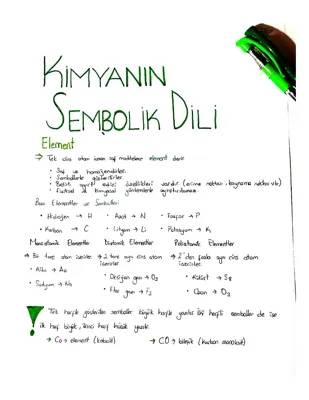 KİMYANIN
SEMBOLİK DİLİ
Element
→ Tek cins atom içeren saf maddelere element denir.
• Saf ve homojendirler.
• Sembollerle gösterilirler.
• Belirli ayırt edici özellikleri vardır (erime noktası, kaynama noktası vb)
• Fiziksel ve kimyasal yöntemlerle ayrıştırılamaz.
Bazı Elementler ve Sembolleri
• Hidrojen → H • Azot → N • Fosfor → P
• Karbon → C • Lityum → Li • Potasyum → K
Monoatomik Elementler Diatomik Elementler Poliatomik Elementler
→ Bir tane atom içerirler → 2 tane aynı cins atom içerirler → 2'den fazla aynı cins atom içerirler.
• Altın → Au
• Sodyum → Na
• Oksijen gazı → O₂
• Flor gazı → F₂
• Kükürt → S₈
• Ozon → O₃
! Tek harfle gösterilen semboller büyük harfle yazılır. İki harfli semboller de ise
ilk harf büyük, ikinci harf küçük yazılır.
→ Co → element (kobalt) → CO → bileşik (karbon monoksit)